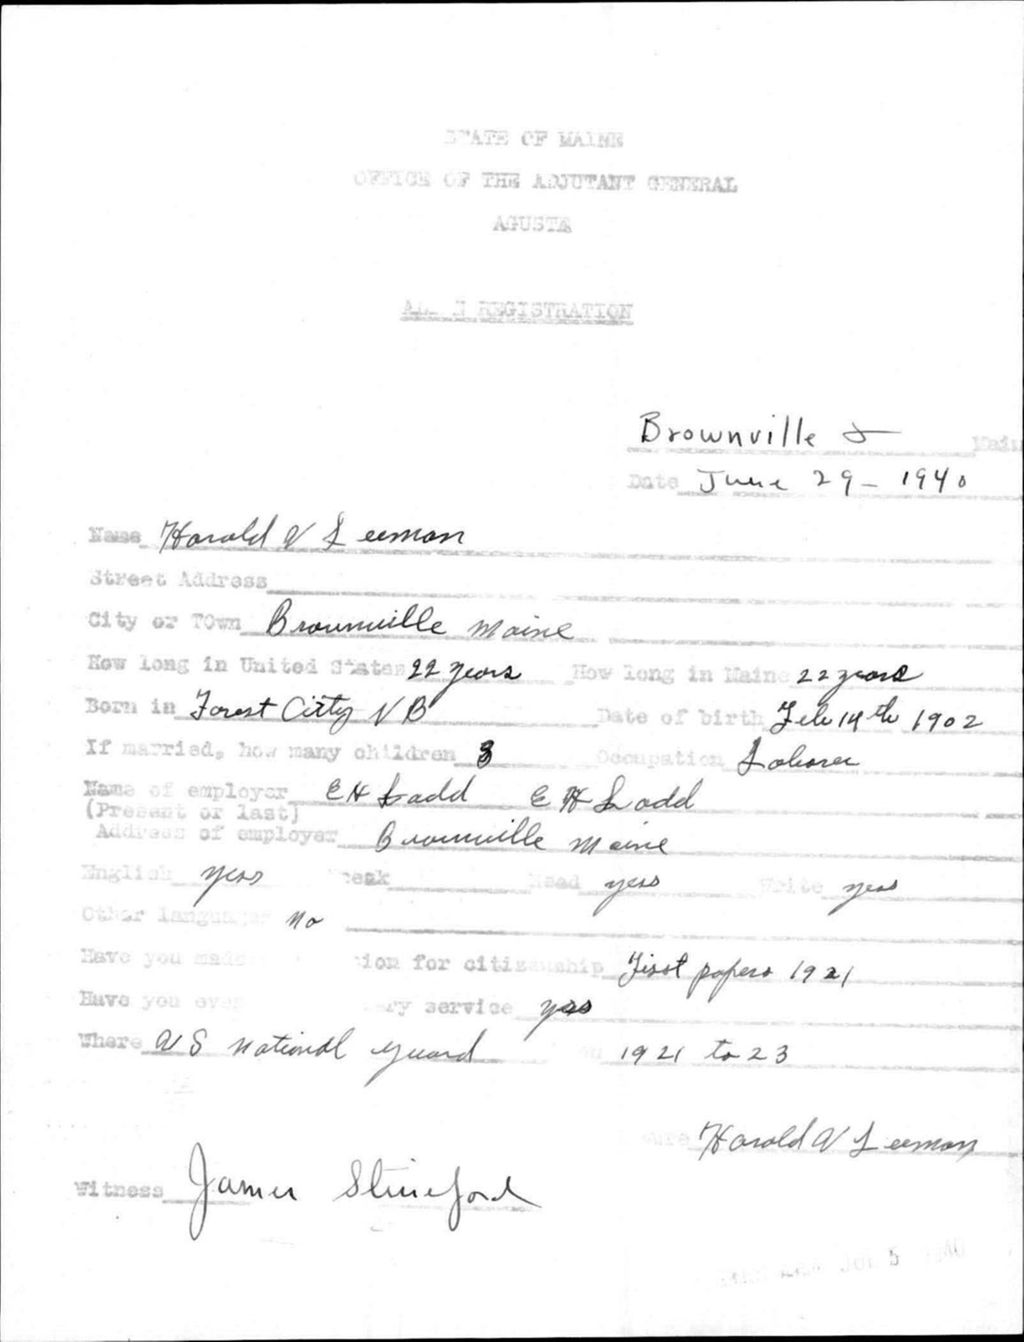 STATE OF MAINE
OFFICE OF THE ADJUTANT GENERAL
AGUSTA
REGISTRATION
Brownville J Maine
Date June 29 - 1940
Name Harold V Leeman
Street Address
City or TOwn Brownville Maine
How long in United States 22 years How long in Maine 22 years
Born in Forest City N B Date of birth Feb 14th 1902
If married, how many children 3 Occupation Laborer
Name of employer E H Ladd E H Ladd
(Present or last)
Address of employer Brownville Maine
English yes Speak Read yes Write yes
Other languages No
Have you made tion for citizenship First papers 1921
Have you ever ry service yes
Where U S National Guard 1921 to 23
Harold V Leeman
Witness James Stineford